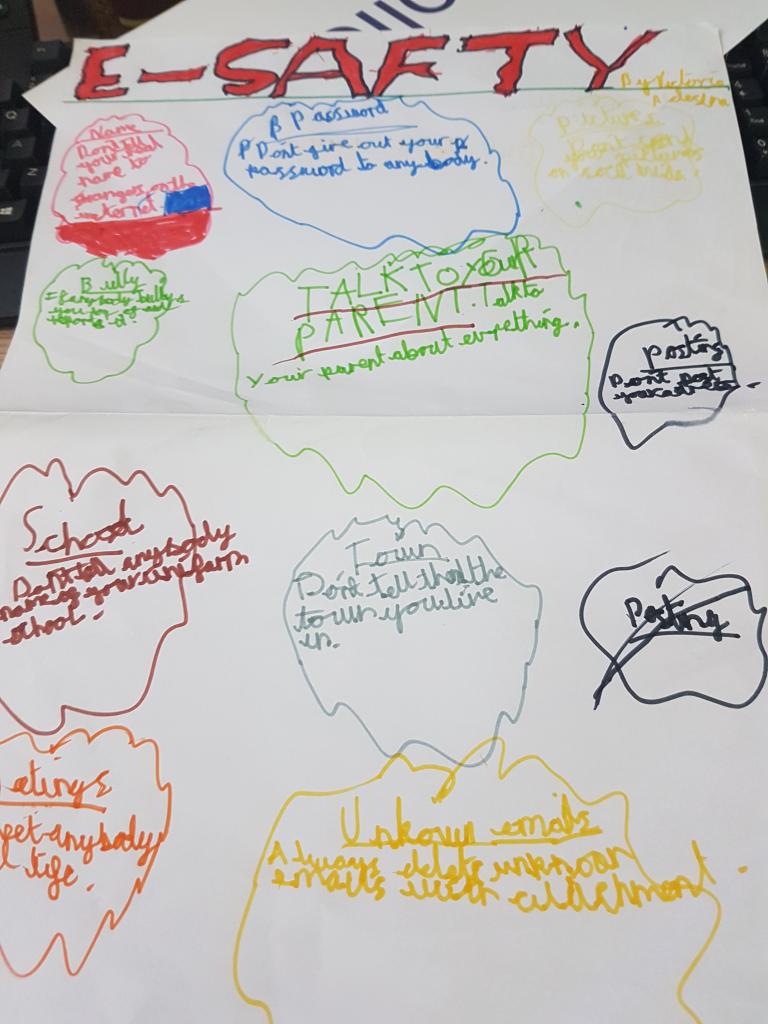 E-SAFTY
By Victoria
Name
Dont tell
your real
name to
strangers on the
internet.
P Password
P Dont give out your p
password to any body.
Pictures
Dont send
your pictures
on
Bully
If anybody bullys
you
report it.
TALK TO YOUR
PARENT. Talk to
Your parent about everything.
Posting
Dont post
School
Dont tell any body
name of your uniform
school.
Town
Dont tell them the
town you live
in.
Posting
etings
eet any body
l life.
Unkown emails
Always delete unknown
emails with attachment